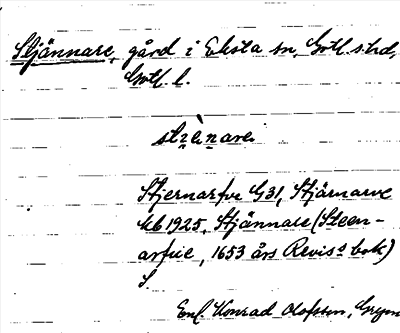 Stjännare, gård i Eksta sn, Gotl. s. hd,
Gotl. l.
Stjernarfve G31, Stjärnarve
kb 1925, Stjännare (Steen-
arfue, 1653 års Revis.s bok)
S
Enl. Konrad Olofsson,